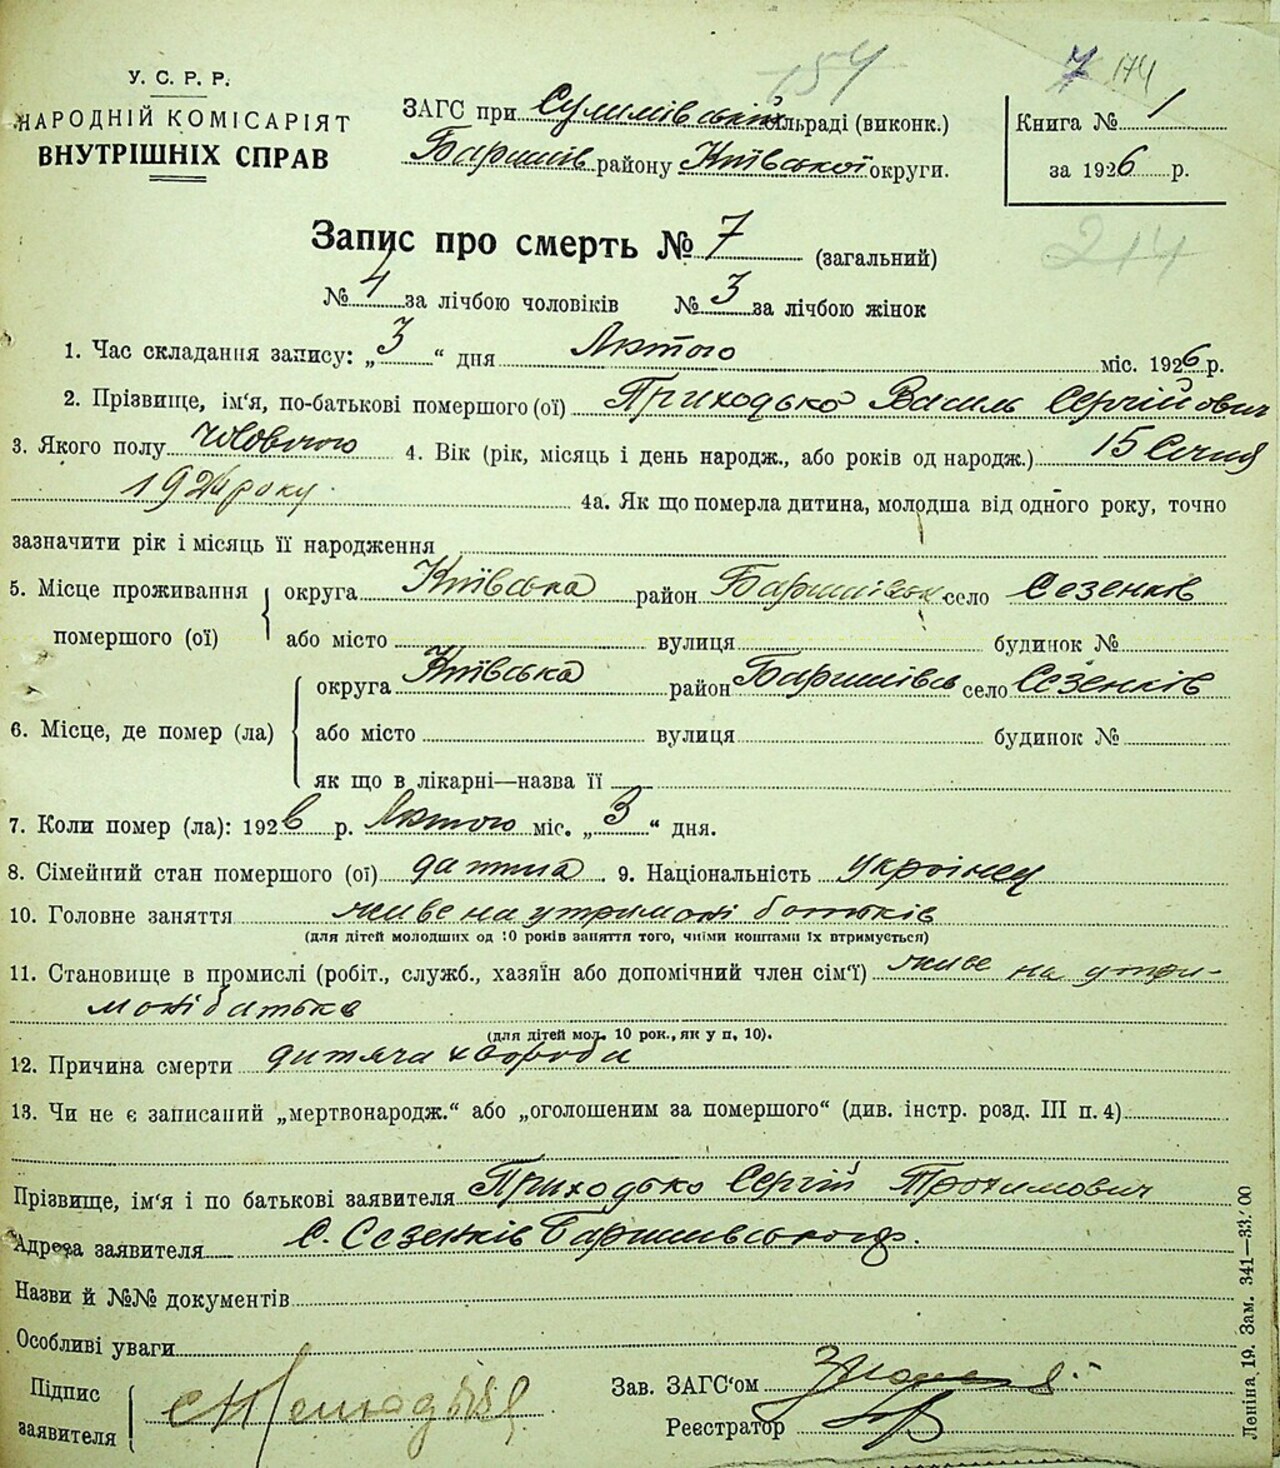 154
7 174
У. С. Р. Р.
НАРОДНІЙ КОМІСАРІЯТ
ВНУТРІШНІХ СПРАВ
ЗАГС при Сулимівській сільраді (виконк.)
Баришів району Київської округи.
Книга № 1
за 1926 р.
214
Запис про смерть № 7 (загальний)
№ 4 за лічбою чоловіків № 3 за лічбою жінок
1. Час складання запису: „3“ дня Лютого міс. 1926 р.
2. Прізвище, ім‘я, по-батькові помершого (ої) Приходько Василь Сергійович
3. Якого полу Чоловічого 4. Вік (рік, місяць і день народж., або років од народж.) 15 Січня
192 року. 4а. Як що померла дитина, молодша від одного року, точно
зазначити рік і місяць її народження
5. Місце проживання помершого (ої) округа Київська район Баришівськ село Сезенків
або місто вулиця будинок №
6. Місце, де помер (ла) округа Київська район Баришівсь село Сезенків
або місто вулиця будинок №
як що в лікарні—назва її
7. Коли помер (ла): 1926 р. Лютого міс. „3“ дня.
8. Сімейний стан помершого (ої) дитина. 9. Національність Україњец
10. Головне заняття живе на утримані батьків
(для дітей молодших од 10 років заняття того, чиїми коштами їх втримується)
11. Становище в промислі (робіт., служб., хазяїн або допомічний член сім‘ї) живе на утри-
мані батьків
(для дітей мол. 10 рок., як у п. 10).
12. Причина смерти дитяча хвороба
13. Чи не є записаний „мертвонародж.“ або „оголошеним за помершого“ (див. інстр. розд. III п. 4)
Прізвище, ім‘я і по батькові заявителя Приходько Сергій Трохимович
Адреса заявителя С. Сезенків Баришівського р.
Назви й №№ документів
Особливі уваги
Підпис заявителя
Зав. ЗАГС‘ом
Реєстратор
Леніна, 19. Зам. 341—33.